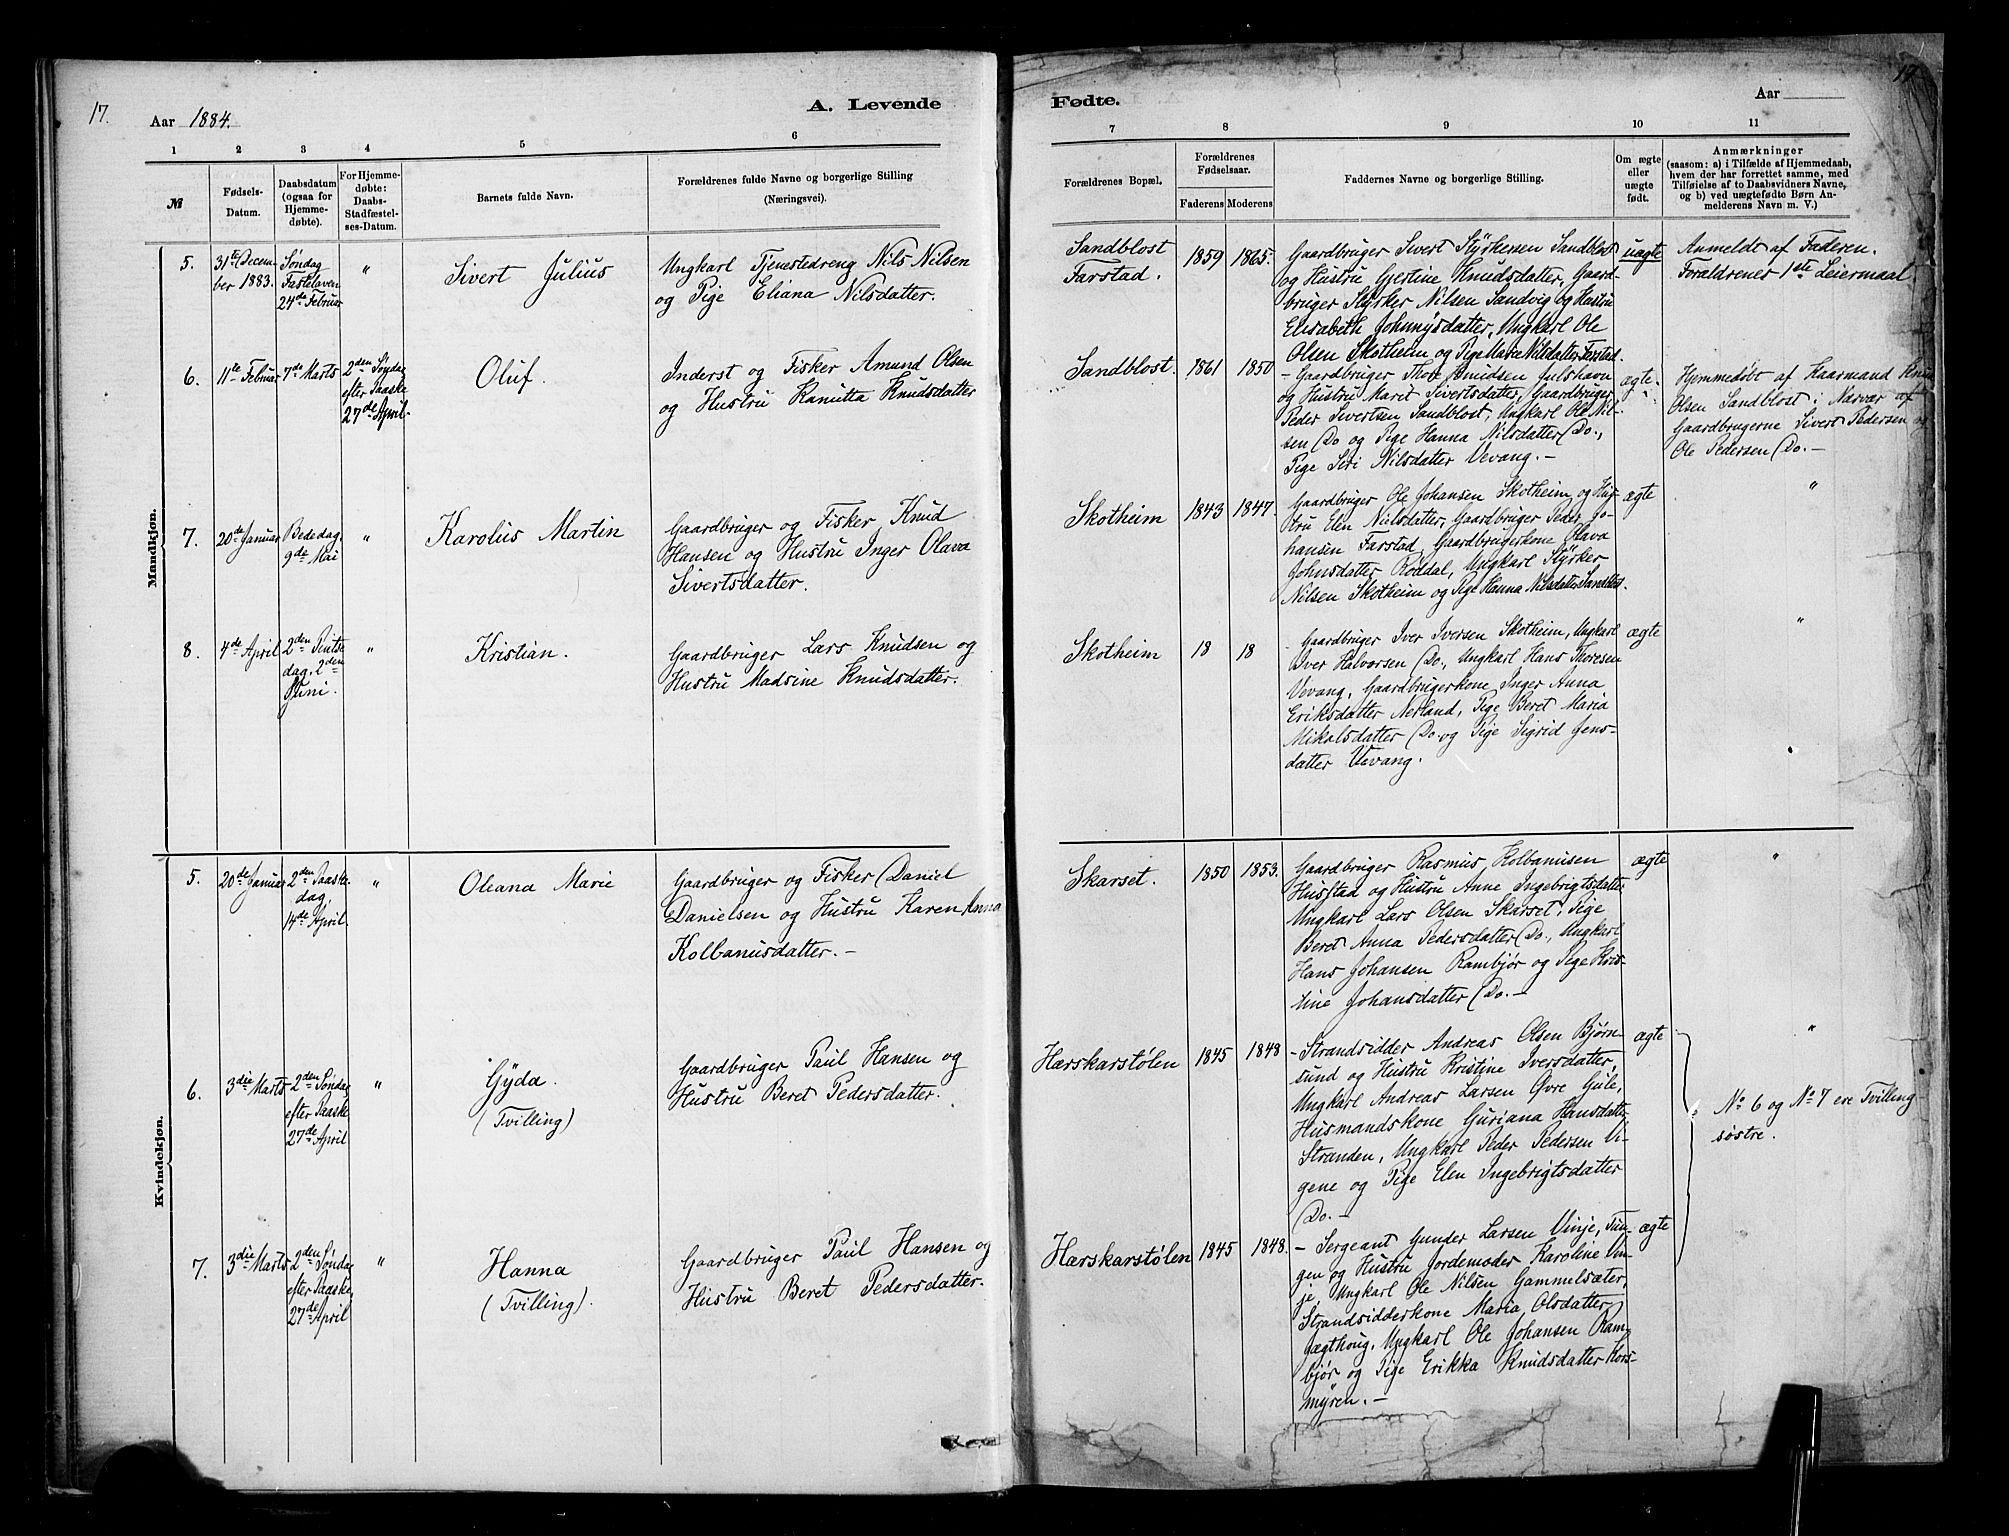 17.
Aar 1884.
A. Levende
1 2 3 4 5 6
№
Fødsels-
Datum.
Daabsdatum
(ogsaa for
Hjemme-
døbte).
For Hjemme-
døbte:
Daabs-
Stadfæstel-
ses-Datum.
Barnets fulde Navn.
Forældrenes fulde Navne og borgerlige Stilling
(Næringsvei).
Mandkjøn.
5.
31te Decem-
ber 1883.
Søndag
Fastelaven
24de Februar
"
Sivert Julius
Ungkarl Tjenestedreng Nils Nilsen
og Pige Eliana Nilsdatter.
6.
11te Februar
7de Marts
2den Søndag
efter Paaske
27de April.
Oluf.
Inderst og Fisker Amund Olsen
og Hustru Ramitta Knudsdatter
7.
20de Januar
Bededag
9de Mai
"
Karolus Martin
Gaardbruger og Fisker Knud
Hansen og Hustru Inger Olava
Sivertsdatter.
8.
4de April
2den Pintse
dag, 2den
Juni.
"
Kristian.
Gaardbruger Lars Knudsen og
Hustru Madsine Knudsdatter.
Kvindekjøn.
5.
20de Januar
2den Paaske
dag,
14de April.
"
Oleana Marie
Gaardbruger og Fisker Daniel
Danielsen og Hustru Karen Anna
Kolbanusdatter. –
6.
3die Marts
2den Søndag
efter Paaske
27de April
"
Gyda.
(Tvilling)
Gaardbruger Paul Hansen og
Hustru Beret Pedersdatter.
7.
3die Marts
2den Søndag
efter Paaske
27de April
"
Hanna
(Tvilling).
Gaardbruger Paul Hansen og
Hustru Beret Pedersdatter.
17
Fødte.
Aar
7 8 9 10 11
Forældrenes Bopæl.
Forældrenes
Fødselsaar.
Faderens Moderens
Faddernes Navne og borgerlige Stilling.
Om ægte
eller
uægte
født.
Anmærkninger
(saasom: a) i Tilfælde af Hjemmedaab,
hvem der har forrettet samme, med
Tilføielse af to Daabsvidners Navne,
og b) ved uægtefødte Børn An-
melderens Navn m. V.)
Sandblost
Farstad.
1859 1865.
Gaardbruger Sivert Styrkersen Sandblost
og Hustru Gjertine Knudsdatter, Gaard-
bruger Styrker Nilsen Sandvig og Hustru
Elisabeth Johnnysdatter, Ungkarl Ole
Olsen Skotheim og Pige Marie Nilsdatter Farstad.
uægte
Anmeldt af Faderen.
Forældrenes 1ste Leiermaal.
Sandblost.
1861 1850
– Gaardbruger Thor Knudsen Julshavn
og Hustru Marit Sivertsdatter, Gaardbruger
Peder Sivertsen Sandblost, Ungkarl Ole Nil-
sen Do og Pige Hanna Nilsdatter Do.,
Pige Seri Nilsdatter Vevang. –
ægte.
Hjemmedøbt af Kaarmand Knud
Olsen Sandblost i Nærvær af
Gaardbrugerne Sivert Pedersen og
Ole Pedersen Do. –
Skotheim
1843 1847.
Gaardbruger Ole Johansen Skotheim og Hus-
tru Elen Nielsdatter, Gaardbruger Peder Jo-
hansen Farstad, Gaardbrugerkone Olava
Johnsdatter Røddal, Ungkarl Styrker
Nilsen Skotheim og Pige Hanna Nilsdatter Sandblost.
ægte
"
Skotheim
18 18
Gaardbruger Iver Iversen Skotheim, Ungkarl
Iver Halvorsen Do., Ungkarl Hans Thoresen
Vevang, Gaardbrugerkone Inger Anna
Eriksdatter Nerland, Pige Beret Maria
Mikalsdatter Do. og Pige Sigrid Jens-
datter Vevang.
ægte
"
Skarset.
1850 1853.
Gaardbruger Rasmus Kolbanusen
Husstad og Hustru Anne Ingebrigtsdatter
Ungkarl Lars Olsen Skarset, Pige
Beret Anna Pedersdatter Do., Ungkarl
Hans Johansen Rambjør og Pige Kris-
tine Johansdatter Do. –
ægte
"
Hærskarstølen
1845 1848
– Strandsidder Andreas Olsen Bjørn-
sund og Hustru Kristine Iversdatter,
Ungkarl Andreas Larsen Øvre Gule,
Husmandskone Guriana Hansdatter
Stranden, Ungkarl Peder Pedersen Vi-
gene og Pige Elen Ingebrigtsdatter
Do. –
ægte
"
No 6 og No 7 ere Tvilling-
søstre.
Hærskarstølen
1845 1848.
– Sergeant Gunder Larsen Vinje, Tun-
gen og Hustru Jordemoder Karoline Vin-
je, Ungkarl Ole Nilsen Gammelsæter,
Strandsidderkone Maria Olsdatter
Jægthoug, Ungkarl Ole Johansen Ram-
bjør og Pige Erikka Knudsdatter Kors-
myren. –
ægte